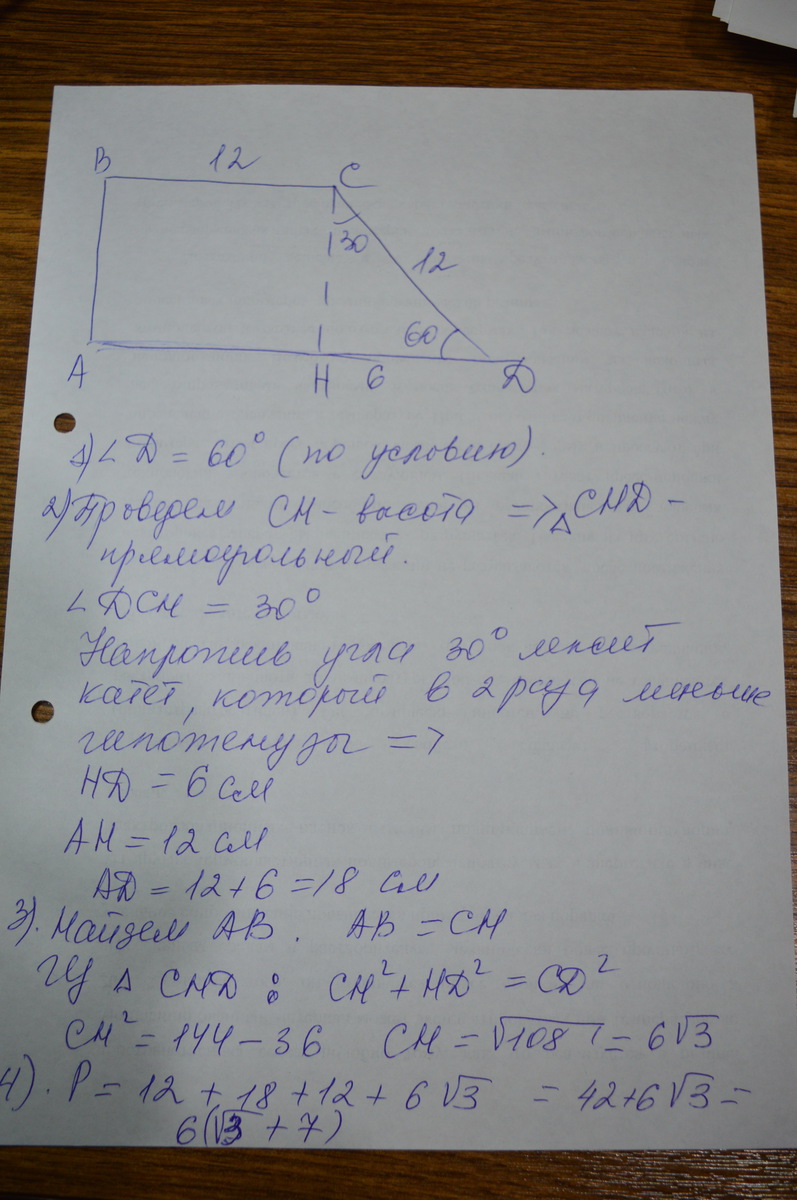 B 12 C
30
12
60
A H 6 D
1) ∠D = 60° (по условию).
2) Проведем CH - высота => △CHD -
прямоугольный.
∠DCH = 30°
Напротив угла 30° лежит
катет, который в 2 раза меньше
гипотенузы =>
HD = 6 см
AH = 12 см
AD = 12 + 6 = 18 см
3). Найдем AB. AB = CH
Из △ CHD : CH² + HD² = CD²
CH² = 144 - 36 CH = √108 = 6√3
4). P = 12 + 18 + 12 + 6√3 = 42 + 6√3 =
6(√3 + 7)